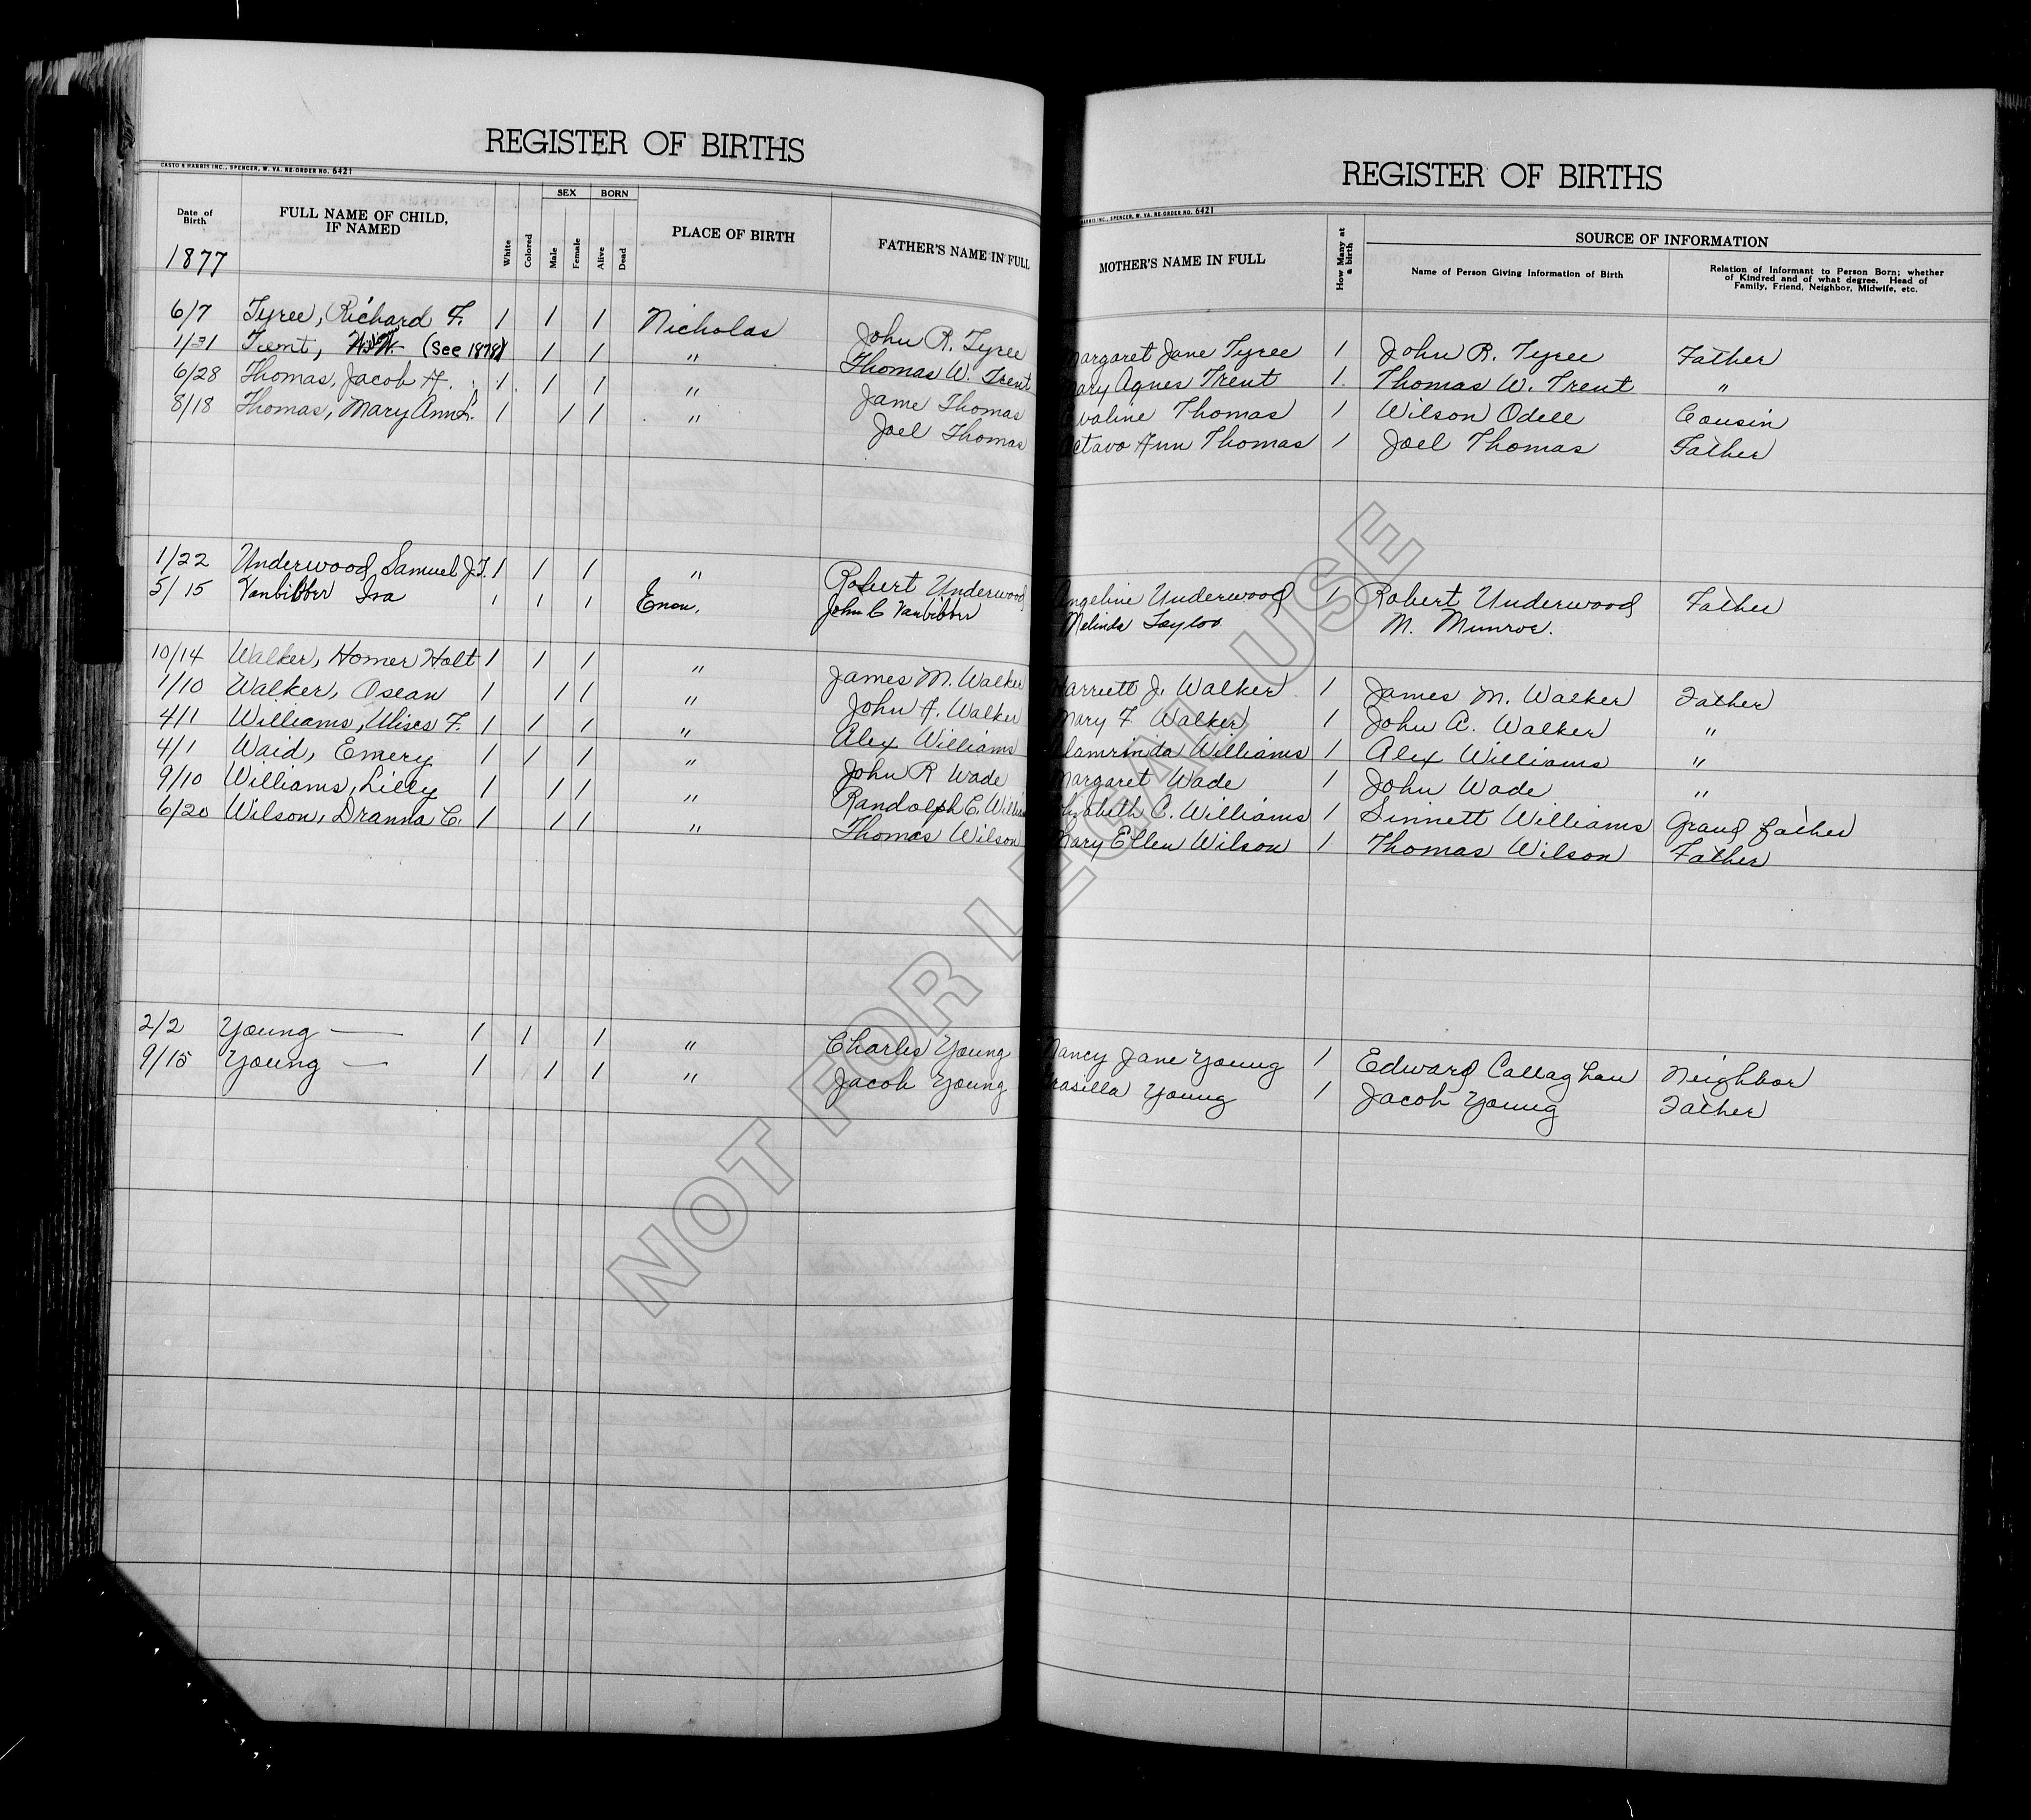 REGISTER OF BIRTHS
CASTO & HARRIS INC., SPENCER, W. VA. RE-ORDER NO. 6421
Date of Birth FULL NAME OF CHILD, IF NAMED White Colored SEX Male Female BORN Alive Dead PLACE OF BIRTH FATHER'S NAME IN FULL
1877
6/7 Tyree, Richard F. 1 1 1 Nicholas John R. Tyree
1/31 Trent, (See 1878) 1 1 " Thomas W. Trent
6/28 Thomas, Jacob A. 1 1 1 " Jame Thomas
8/18 Thomas, Mary Ann L. 1 1 1 " Joel Thomas
1/22 Underwood, Samuel J.T. 1 1 1 " Robert Underwood
5/15 Vanbibber Ira 1 1 1 Enon, John C Vanbibber
10/14 Walker, Homer Holt 1 1 1 " James M. Walker
1/10 Walker, Osean 1 1 1 " John A. Walker
4/1 Williams, Ulises F. 1 1 1 " Alex Williams
4/1 Waid, Emery 1 1 1 " John R Wade
9/10 Williams, Lilly 1 1 1 " Randolph C. Williams
6/20 Wilson, Dranna C. 1 1 1 " Thomas Wilson
2/2 Young — 1 1 1 " Charles Young
9/15 Young — 1 1 1 " Jacob Young
REGISTER OF BIRTHS
HARRIS INC., SPENCER, W. VA. RE-ORDER NO. 6421
MOTHER'S NAME IN FULL How Many at a birth SOURCE OF INFORMATION
Name of Person Giving Information of Birth Relation of Informant to Person Born; whether of Kindred and of what degree, Head of Family, Friend, Neighbor, Midwife, etc.
Margaret Jane Tyree 1 John R. Tyree Father
Mary Agnes Trent 1 Thomas W. Trent "
Thomas 1 Wilson Odell Cousin
Ann Thomas 1 Joel Thomas Father
Angeline Underwood 1 Robert Underwood Father
Melinda Taylor M. Munroe.
Harriett J. Walker 1 James M. Walker Father
Mary F Walker 1 John A. Walker "
Williams 1 Alex Williams "
Margaret Wade 1 John Wade "
Elizabeth C. Williams 1 Sinnett Williams Grand father
Mary Ellen Wilson 1 Thomas Wilson Father
Nancy Jane Young 1 Edward Callaghan Neighbor
Young 1 Jacob Young Father
NOT FOR LEGAL USE